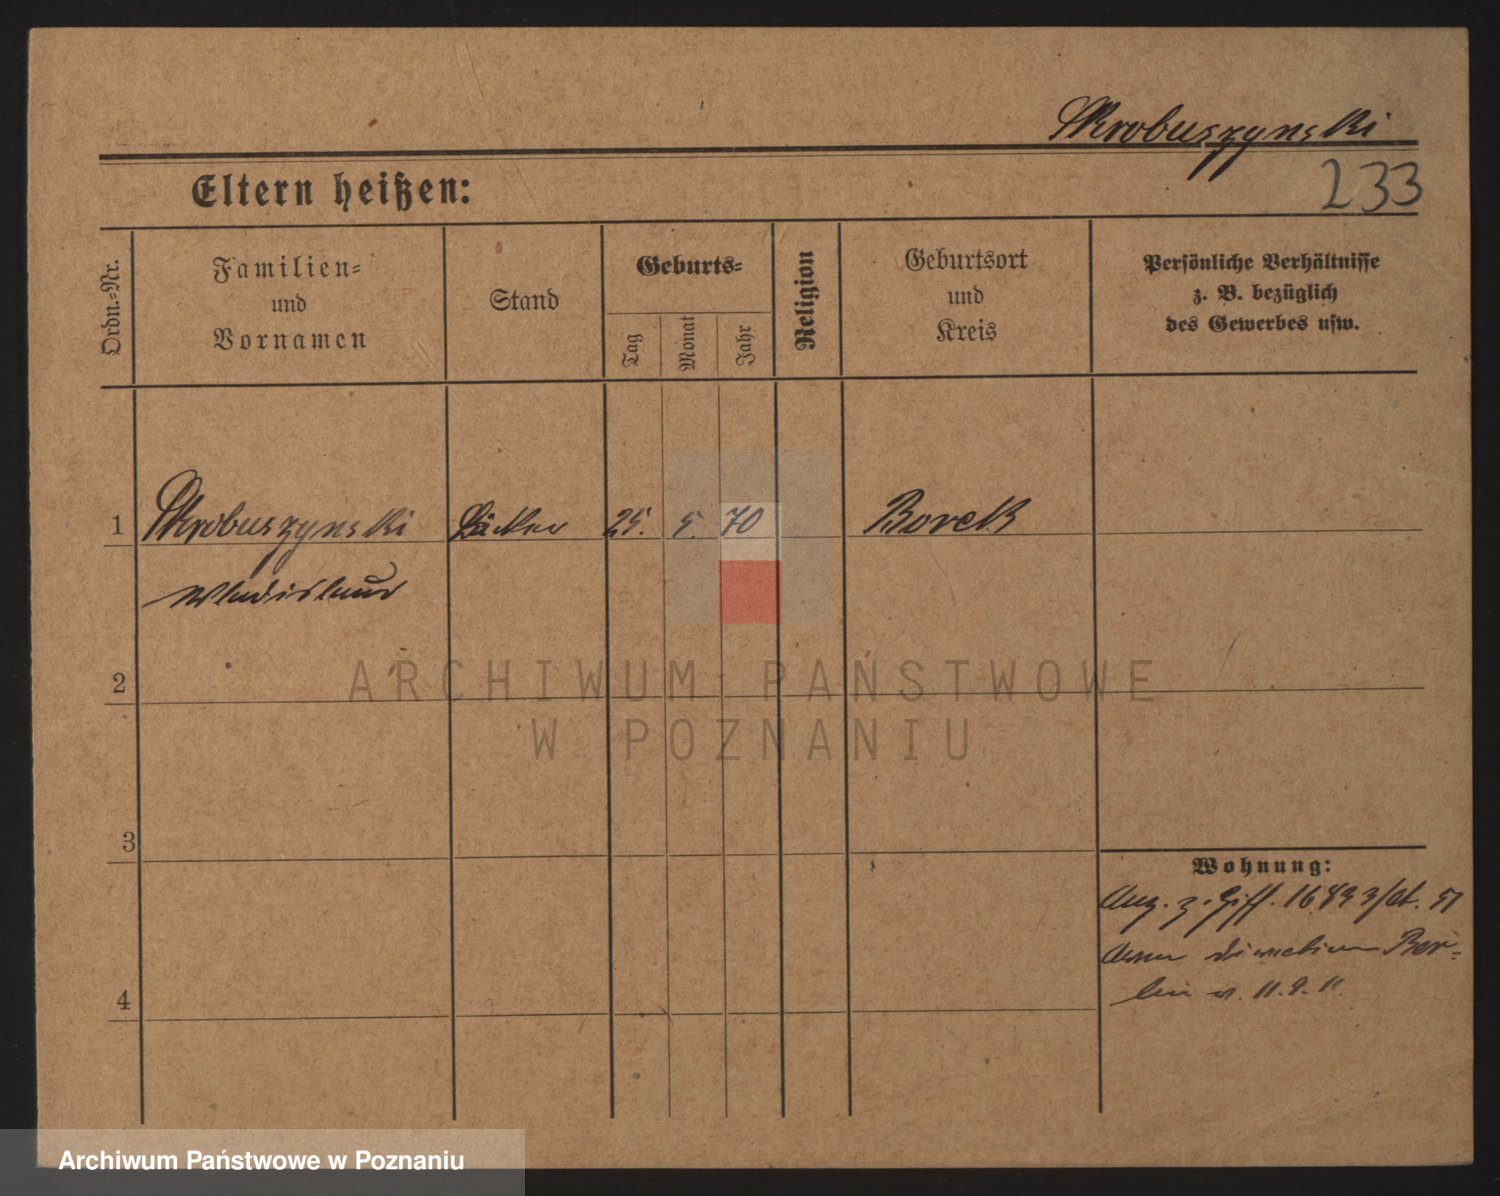 Skrobuszynski
233
Eltern heißen:
Ordn.=Nr.
Familien=
und
Vornamen
Stand
Geburts=
Tag
Monat
Jahr
Religion
Geburtsort
und
Kreis
Persönliche Verhältnisse
z. B. bezüglich
des Gewerbes usw.
1
Skrobuszynski
Bäcker
25.
5.
70
Borek
Wladislaus
2
ARCHIWUM PAŃSTWOWE
W POZNANIU
3
Wohnung:
Ang. z. Ziff.
direction Ber=
lin v. 11.9.11.
4
Archiwum Państwowe w Poznaniu